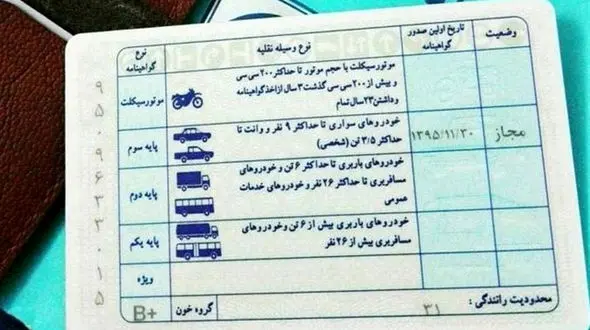 وضعیت
تاریخ اولین صدور گواهینامه
نوع وسیله نقلیه
نوع گواهینامه
موتورسیکلت با حجم موتور تا حداکثر ۲۰۰ سی سی
و بیش از ۲۰۰ سی سی گذشت ۳ سال از اخذ گواهینامه
وداشتن ۲۳ سال تمام
موتورسیکلت
مجاز
۱۳۹۵/۱۱/۳۰
خودروهای سواری تا حداکثر ۹ نفر و وانت تا
حداکثر ۳/۵ تن (شخصی)
پایه سوم
خودروهای باربری تا حداکثر ۶ تن و خودروهای
مسافربری تا حداکثر ۲۶ نفر و خودروهای خدمات
عمومی
پایه دوم
خودروهای باربری بیش از ۶ تن و خودروهای
مسافربری بیش از ۲۶ نفر
پایه یکم
ویژه
محدودیت رانندگی :
۳۱
گروه خون
B+
۹
۵
۰
۹
۶
۳
۳
۰
۱
۵